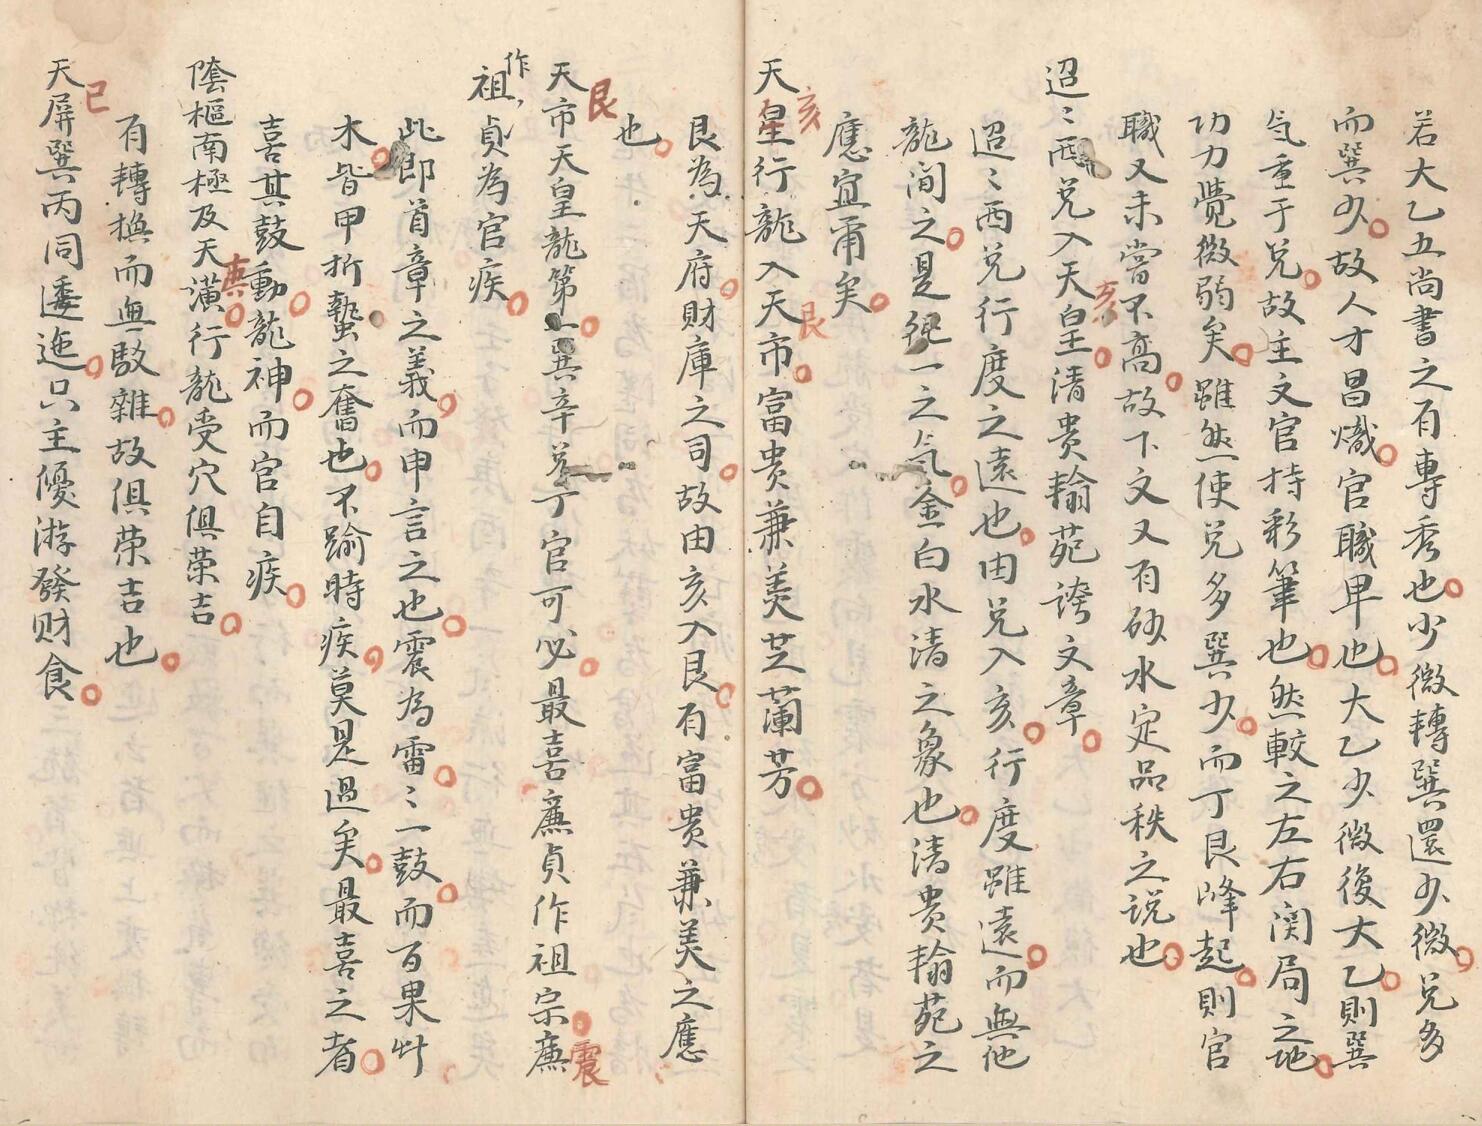 若大乙五尚書之有專秀也少微轉巽還少微兌多
而巽少故人才昌熾官職卑也大乙少微後大乙則巽
气重于兌故主文官持彩筆也然較之左右闵局之地
功力覺微弱矣雖然使兌多巽少而丁艮峰起則官
職又未嘗不高故下文又有砂水定品秩之説也
迢〻西兌入天皇清贵翰苑誇文章
亥
迢〻西兌行度之遠也由兌入亥行度雖遠而無他
龍间之是純一之气金白水清之象也清贵翰苑之
應宜甭矣
天皇行龍入天市富贵兼美芝蘭芳
亥
艮
艮為天府財庫之司故由亥入艮有富贵兼美之應
也
天市天皇龍第一巽辛兌丁官可必最喜廉貞作祖宗廉
艮
震
作
祖貞為官疾
此即首章之義而申言之也震為雷〻一鼓而百果艸
木皆甲折蟄之奮也不踰時疾莫是過矣最喜之者
喜其鼓動龍神而官自疾
陰樞南極及天潢行龍受穴俱荣吉
有轉換而無駁雜故俱荣吉也
天屏巽丙同逶迤只主優游發财食
巳